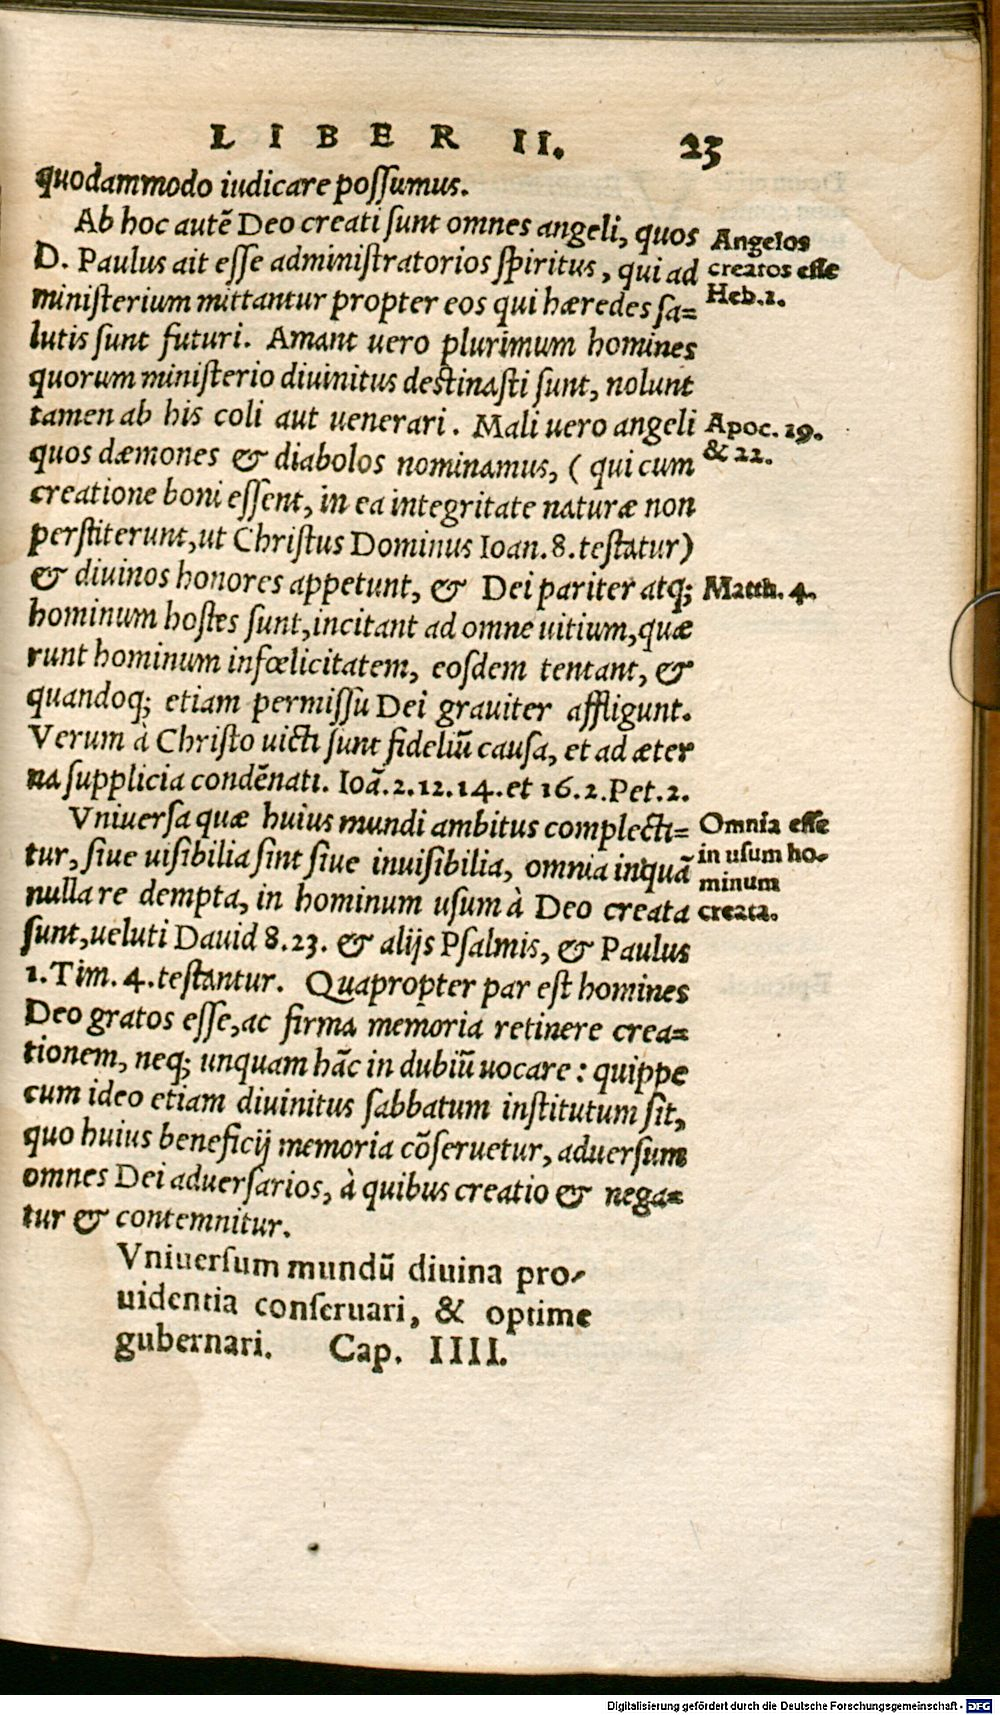 LIBER II. 23
quodammodo iudicare possumus.
Ab hoc autē Deo creati sunt omnes angeli, quos
D. Paulus ait esse administratorios spiritus, qui ad
ministerium mittantur propter eos qui hæredes sa=
lutis sunt futuri. Amant uero plurimum homines
quorum ministerio diuinitus destinasti sunt, nolunt
tamen ab his coli aut uenerari. Mali uero angeli
quos dæmones & diabolos nominamus, ( qui cum
creatione boni essent, in ea integritate naturæ non
perstiterunt, ut Christus Dominus Ioan. 8. testatur)
& diuinos honores appetunt, & Dei pariter atq;
hominum hostes sunt, incitant ad omne uitium, quæ
runt hominum infœlicitatem, eosdem tentant, &
quandoq; etiam permissu Dei grauiter affligunt.
Verum à Christo uicti sunt fideliū causa, et ad æter
na supplicia condēnati. Ioā. 2. 12. 14. et 16. 2. Pet. 2.
Vniuersa quæ huius mundi ambitus complecti=
tur, siue uisibilia sint siue inuisibilia, omnia inquā
nulla re dempta, in hominum usum à Deo creata
sunt, ueluti Dauid 8. 23. & alijs Psalmis, & Paulus
1. Tim. 4. testantur. Quapropter par est homines
Deo gratos esse, ac firma memoria retinere crea=
tionem, neq; unquam hāc in dubiū uocare: quippe
cum ideo etiam diuinitus sabbatum institutum sit,
quo huius beneficij memoria cōseruetur, aduersum
omnes Dei aduersarios, à quibus creatio & nega=
tur & contemnitur.
Vniuersum mundū diuina pro-
uidentia conseruari, & optime
gubernari. Cap. IIII.
Angelos
creatos esse
Heb. 1.
Apoc. 19.
& 22.
Matth. 4.
Omnia esse
in usum ho-
minum
creata.
Digitalisierung gefördert durch die Deutsche Forschungsgemeinschaft - DFG